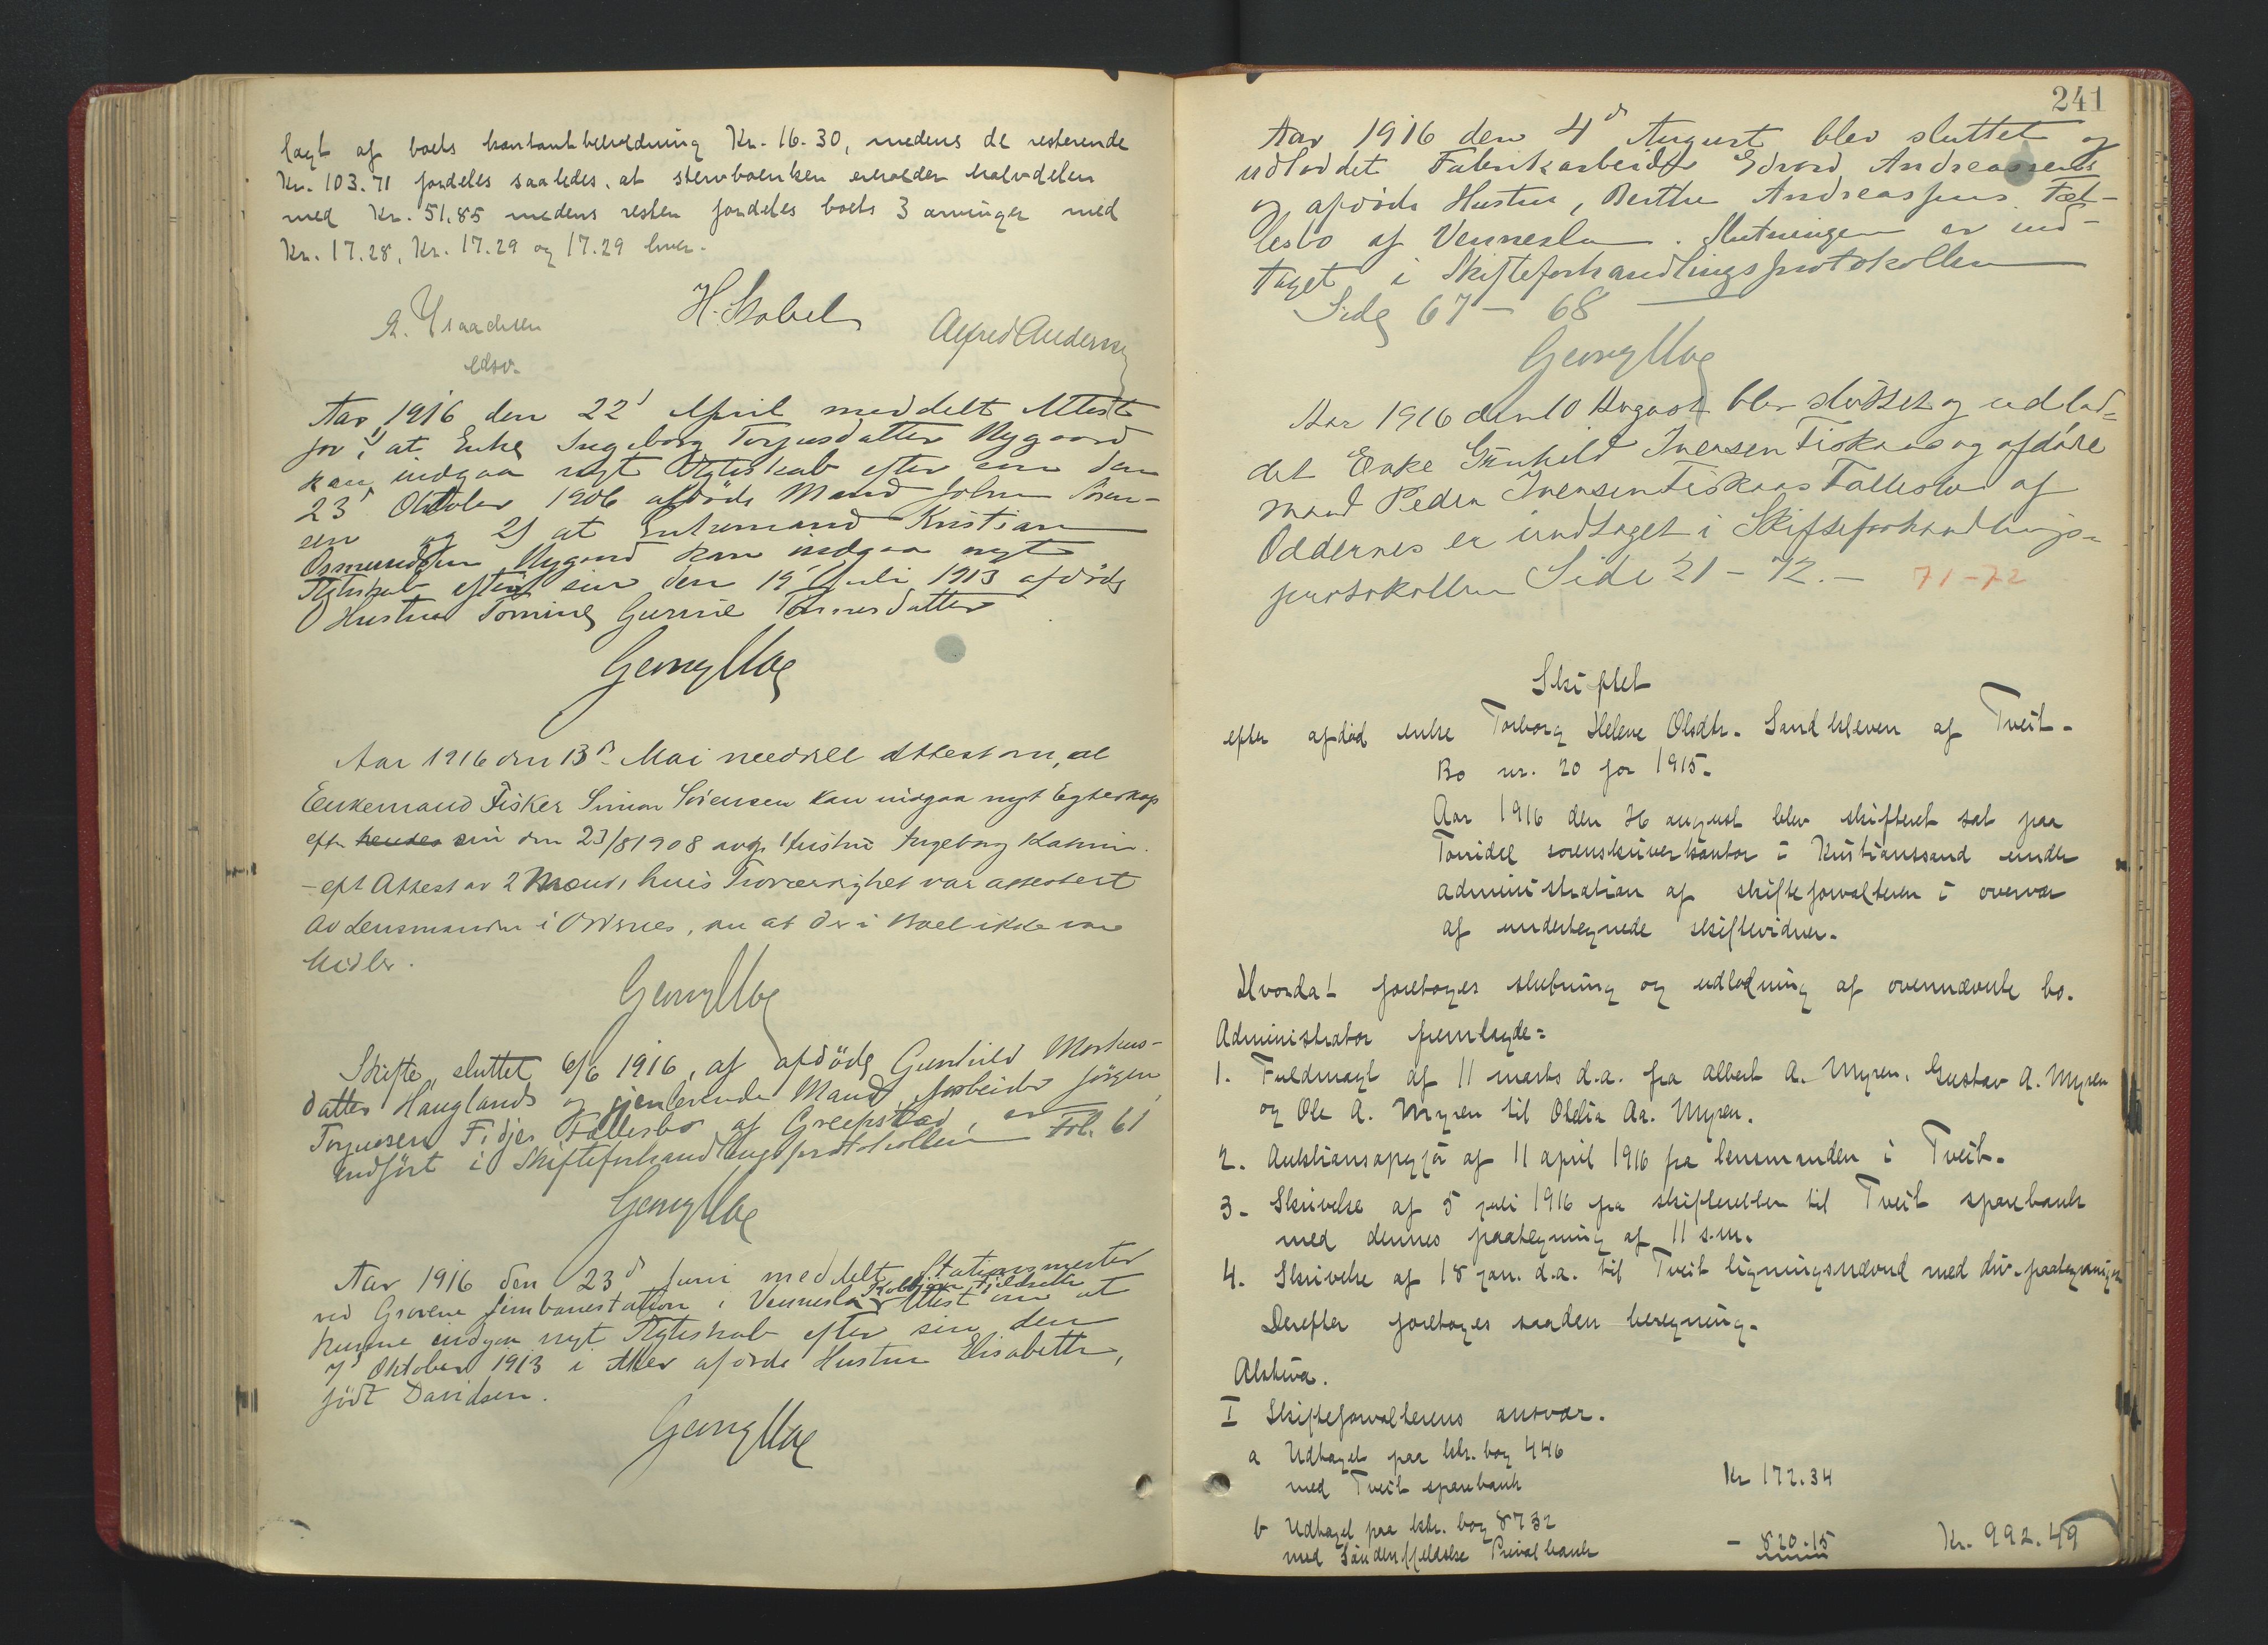 lagt af boets kontantbeholdning Kr. 16.30, medens de resterende
Kr. 103.71 fordeles saaledes, at stervboenken erholder halvdelen
med Kr. 51.85 medens resten fordeles boets 3 arvinger med
Kr. 17.28, Kr. 17.29 og 17.29 hver.
H. Skobel
Alfred Andersen
Aar 1916 den 22' April meddelt Attest
for 1) at Enke Ingeborg Torjusdatter Nygaard
kan indgaa nyt Egteskab efter sin den
23' Oktober 1906 afdöde Mand John Soren-
sen og 2) at Enkemand Kristian
Osmundsen Nygaard kan indgaa nyt
Egteskab efter sin den 19' Juli 1913 afdöde
Hustru Tomine Gurine Tönnesdatter
Georg Moe
Aar 1916 den 13de Mai meddelt Attest om, at
Enkemand Fisker Simon Sörensen kan indgaa nyt Egteskap
efter hendes sin den 23/8 1908 avdøde Hustru Ingeborg
- eft Attest av 2 Mænd, hvis Troværdighet var attestert
av Lensmanden i Oddernes, om at der i Boet ikke var
Midler.
Georg Moe
Skifte, sluttet 6/6 1916, af afdöde Gunhild Markus-
datter Hauglands og gjenlevende Mand, Arbeider Jörgen
Torjussen Fidjes Fællesbo af Greipstad, er
indfört i Skifteforhandlingsprotokollen Fol. 61
Georg Moe
Aar 1916 den 23d Juni meddelt Stationsmester
ved Grovene Jernbanestation i Vennesla Kolbjörn Attest om at
kunne indgaa nyt Egteskab efter sin den
7' Oktober 1913 i afdöde Hustru Elisabeth,
födt Davidsen.
Georg Moe
241
Aar 1916 den 4d August blev sluttet og
udloddet Fabrikarbeider Edvard Andreassens
og afdöde Hustru, Berthe Andreassens Fæl-
lesbo af Vennesla. Slutningen er ind-
taget i Skifteforhandlingsprotokollen
Side 67 - 68
Georg Moe
Aar 1916 den 10 August blev sluttet og udlod-
det Enke Gunhild Iversen Fiskaas og afdøde
mand Peder Iversen Fiskaas Fællesbo af
Oddernes er indtaget i Skifteforhandlings-
protokollen Side 21 - 72. - 71-72
Skiftet
efter afdød enke Torborg Helene Olsdtr. Sandkleven af Tveit.
Bo nr. 20 for 1915.
Aar 1916 den 26 august blev skifteret sat paa
Torridal sorenskriverkontor i Kristianssand under
administration af skifteforvalteren i overvær
af undertegnede skiftevidner.
Hvorda! foretoges slutning og udlodning af ovennævnte bo.
Administrator fremlagde:
1. Fuldmagt af 11 marts d.a. fra Albert A. Myren, Gustav A. Myren
og Ole A. Myren til Aa. Myren.
2. Auktionsopgjør af 11 april 1916 fra lensmanden i Tveit.
3. Skrivelse af 5 juli 1916 fra skifteretten til Tveit sparebank
med dennes paategning af 11 s.m.
4. Skrivelse af 18 jan. d.a. til Tveit ligningsnævnd med div. paategninger
Derefter foretoges saaden beregning.
Aktiva.
I Skifteforvalterens ansvar.
a Udtaget paa ktr. bog 446
med Tveit sparebank Kr 172.34
b Udtaget paa ktr. bog 8732
med Søndenfjeldske Privatbank - 820.15 Kr. 992.49